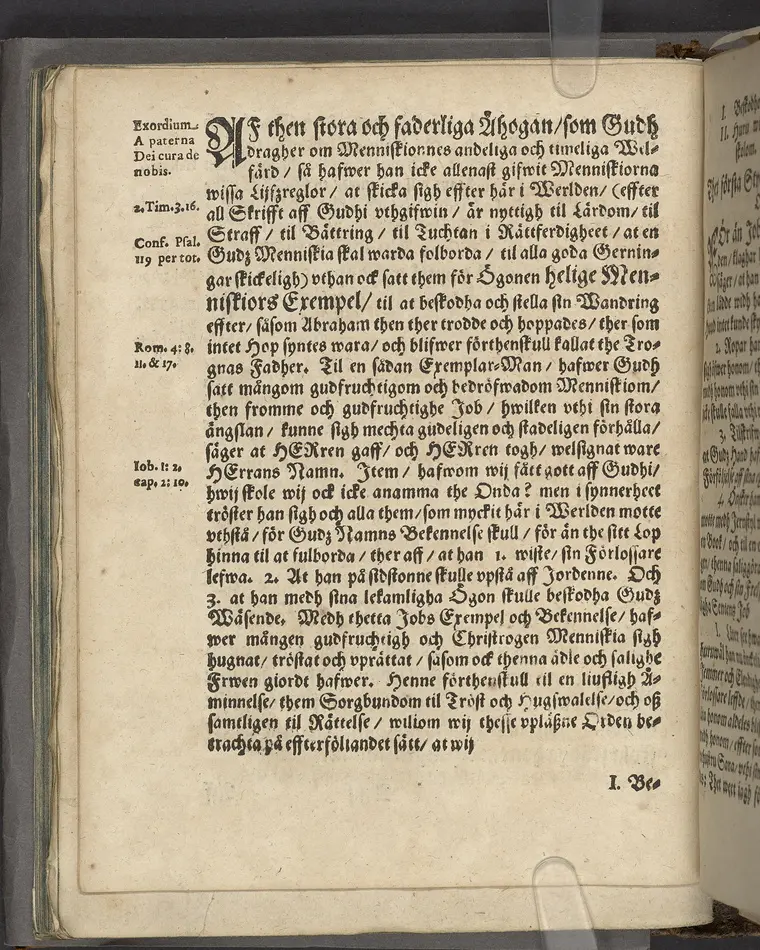 Exordium
A paterna
Dei cura de
nobis.
2. Tim. 3. 16.
Conf. Psal.
119 per tot.
Rom. 4: 8.
11. & 17.
Iob. 1: 2.
cap. 2: 10.
AF then stora och faderliga Åhogan/ som Gudh
dragher om Menniskiornes andeliga och timeliga Wel-
färd/ så hafwer han icke allenast gifwit Menniskiorna
wissa Lijfzreglor/ at skicka sigh effter här i Werlden/ (effter
all Skrifft aff Gudhi vthgifwin/ är nyttigh til Lärdom/ til
Straff/ til Bättring/ til Tuchtan i Rättferdigheet/ at en
Gudz Menniskia skal warda folborda/ til alla goda Gernin-
gar skickeligh) vthan ock satt them för Ögonen helige Men-
niskiors Exempel/ til at beskodha och stella sin Wandring
effter/ såsom Abraham then ther trodde och hoppades/ ther som
intet Hop syntes wara/ och blifwer förthenskull kallat the Tro-
gnas Fadher. Til en sådan Exemplar-Man/ hafwer Gudh
satt mångom gudfruchtigom och bedröfwadom Menniskiom/
then fromme och gudfruchtighe Job/ hwilken vthi sin stora
ångslan/ kunne sigh mechta gudeligen och stadeligen förhålla/
säger at HERren gaff/ och HERren togh/ welsignat ware
HErrans Namn. Item/ hafwom wij fått gott aff Gudhi/
hwij skole wij ock icke anamma the Onda? men i synnerheet
tröster han sigh och alla them/ som myckit här i Werlden motte
vthstå/ för Gudz Namns Bekennelse skull/ för än the sitt Lop
hinna til at fulborda/ ther aff/ at han 1. wiste/ sin Förlossare
lefwa. 2. At han på sidstonne skulle vpstå aff Jordenne. Och
3. at han medh sina lekamligha Ögon skulle beskodha Gudz
Wäsende. Medh thetta Jobs Exempel och Bekennelse/ haf-
wer mången gudfruchtigh och Christrogen Menniskia sigh
hugnat/ tröstat och vprättat/ såsom ock thenna ädle och salighe
Frwen giordt hafwer. Henne förthenskull til en liufligh Å-
minnelse/ them Sorgbundom til Tröst och Hugswalelse/ och oß
samtligen til Rättelse/ wiliom wij thesse vpläßne Orden be-
trachta på effterföliandet sätt/ at wij
I. Be-